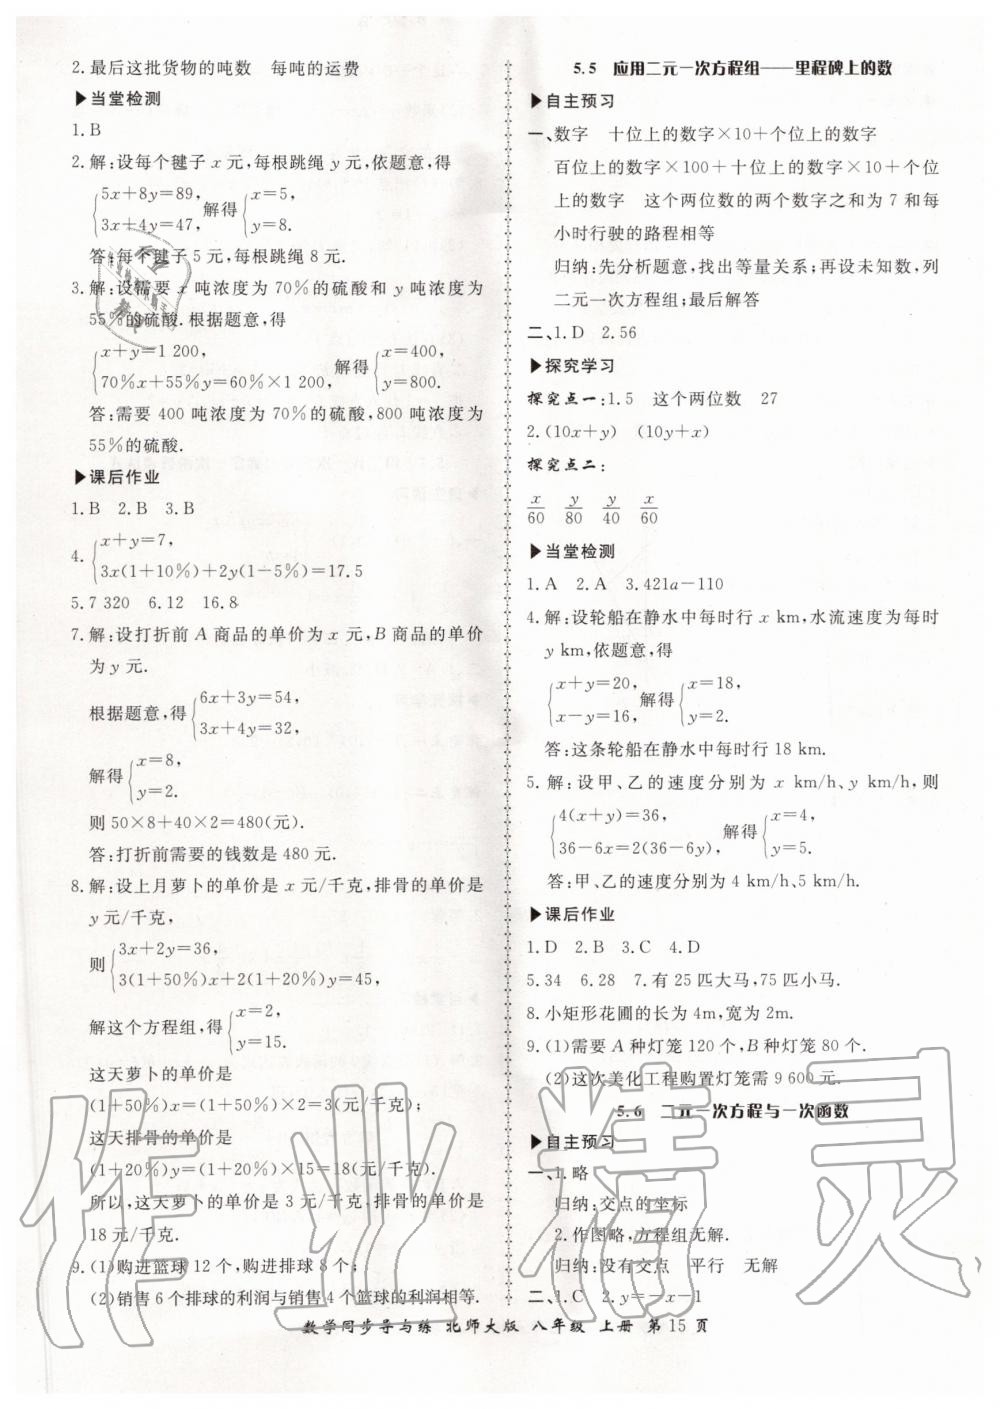 2.最后这批货物的吨数　每吨的运费
▶当堂检测
1.B
2.解:设每个毽子 x 元,每根跳绳 y 元,依题意,得
{5x+8y=89, 3x+4y=47, 解得{x=5, y=8.
答:每个毽子 5 元,每根跳绳 8 元.
3.解:设需要 x 吨浓度为 70%的硫酸和 y 吨浓度为
55%的硫酸.根据题意,得
{x+y=1 200, 70%x+55%y=60%×1 200, 解得{x=400, y=800.
答:需要 400 吨浓度为 70%的硫酸,800 吨浓度为
55%的硫酸.
▶课后作业
1.B　2.B　3.B
4.{x+y=7, 3x(1+10%)+2y(1-5%)=17.5
5.7 320　6.12　16.8
7.解:设打折前 A 商品的单价为 x 元,B 商品的单价
为 y 元.
根据题意,得{6x+3y=54, 3x+4y=32,
解得{x=8, y=2.
则 50×8+40×2=480(元).
答:打折前需要的钱数是 480 元.
8.解:设上月萝卜的单价是 x 元/千克,排骨的单价是
y 元/千克,
则{3x+2y=36, 3(1+50%)x+2(1+20%)y=45,
解这个方程组,得{x=2, y=15.
这天萝卜的单价是
(1+50%)x=(1+50%)×2=3(元/千克);
这天排骨的单价是
(1+20%)y=(1+20%)×15=18(元/千克).
所以,这天萝卜的单价是 3 元/千克,排骨的单价是
18 元/千克.
9.(1)购进篮球 12 个,购进排球 8 个;
(2)销售 6 个排球的利润与销售 4 个篮球的利润相等.
5.5　应用二元一次方程组——里程碑上的数
▶自主预习
一、数字　十位上的数字×10+个位上的数字
百位上的数字×100+十位上的数字×10+个位
上的数字　这个两位数的两个数字之和为 7 和每
小时行驶的路程相等
归纳:先分析题意,找出等量关系;再设未知数,列
二元一次方程组;最后解答
二、1.D　2.56
▶探究学习
探究点一:1.5　这个两位数　27
2.(10x+y)　(10y+x)
探究点二:
x/60　y/80　y/40　x/60
▶当堂检测
1.A　2.A　3.421a-110
4.解:设轮船在静水中每时行 x km,水流速度为每时
y km,依题意,得
{x+y=20, x-y=16, 解得{x=18, y=2.
答:这条轮船在静水中每时行 18 km.
5.解:设甲、乙的速度分别为 x km/h、y km/h,则
{4(x+y)=36, 36-6x=2(36-6y), 解得{x=4, y=5.
答:甲、乙的速度分别为 4 km/h、5 km/h.
▶课后作业
1.D　2.B　3.C　4.D
5.34　6.28　7.有 25 匹大马,75 匹小马.
8.小矩形花圃的长为 4m,宽为 2m.
9.(1)需要 A 种灯笼 120 个,B 种灯笼 80 个.
(2)这次美化工程购置灯笼需 9 600 元.
5.6　二元一次方程与一次函数
▶自主预习
一、1.略
归纳:交点的坐标
2.作图略,方程组无解.
归纳:没有交点　平行　无解
二、1.C　2.y=-x-1
数学同步导与练　北师大版　八年级　上册　第 15 页
作业精灵